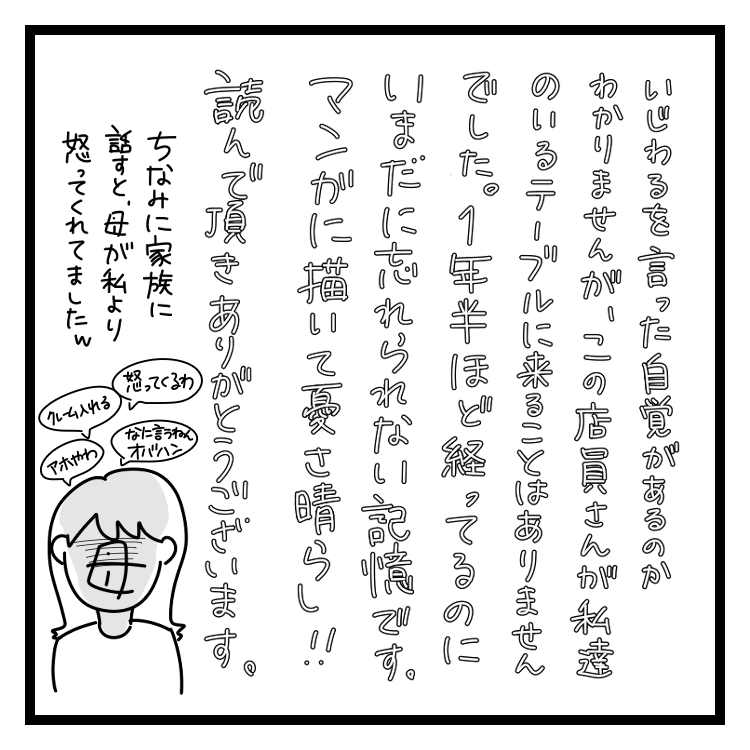 いじわるを言った自覚があるのか
わかりませんが、この店員さんが私達
のいるテーブルに来ることはありません
でした。1年半ほど経ってるのに
いまだに忘れられない記憶です。
マンガに描いて憂さ晴らし!!
読んで頂きありがとうございます。
ちなみに家族に
話すと、母が私より
怒ってくれてましたw
怒ってくるわ
クレーム入れる
なに言うねん
オバハン
アホやわ
母